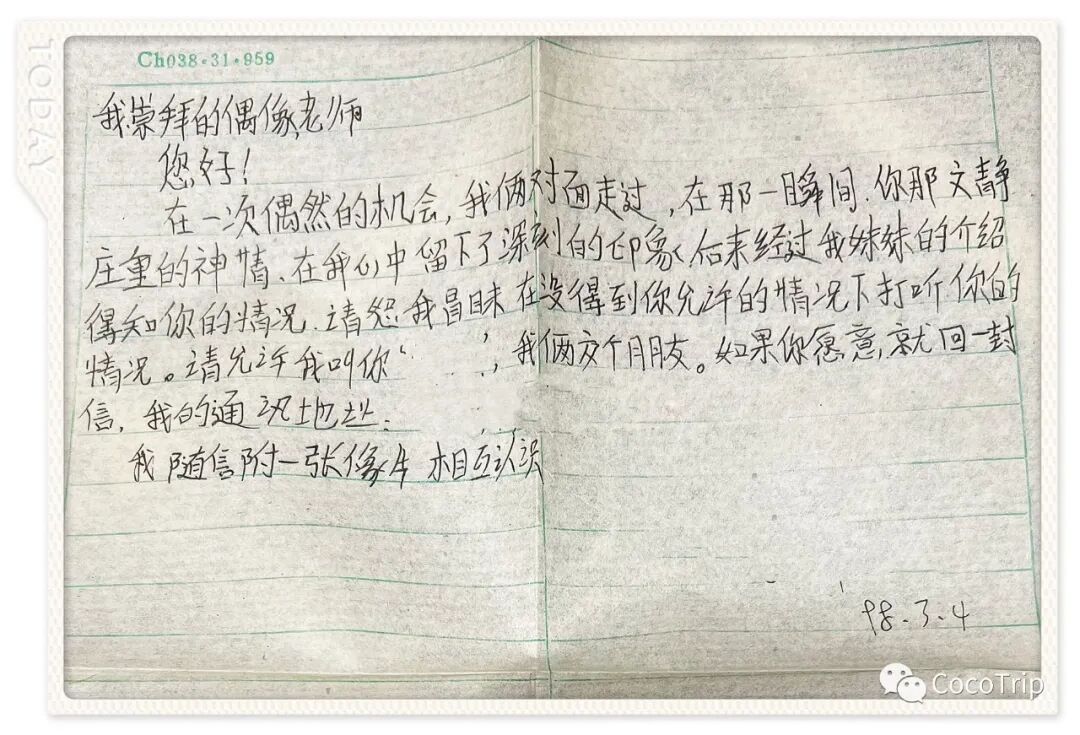 TODAY
Ch038·31·959
我崇拜的偶像,老师
您好!
在一次偶然的机会,我俩对面走过,在那一瞬间.你那文静
庄重的神情、在我心中留下了深刻的印象,后来经过我妹妹的介绍
得知你的情况.请恕我冒昧在没得到你允许的情况下打听你的
情况。请允许我叫你“ ”,我俩交个月朋友。如果你愿意,就回一封
信,我的通讯地址:
我随信附一张像片 相互认识
98.3.4
CocoTrip